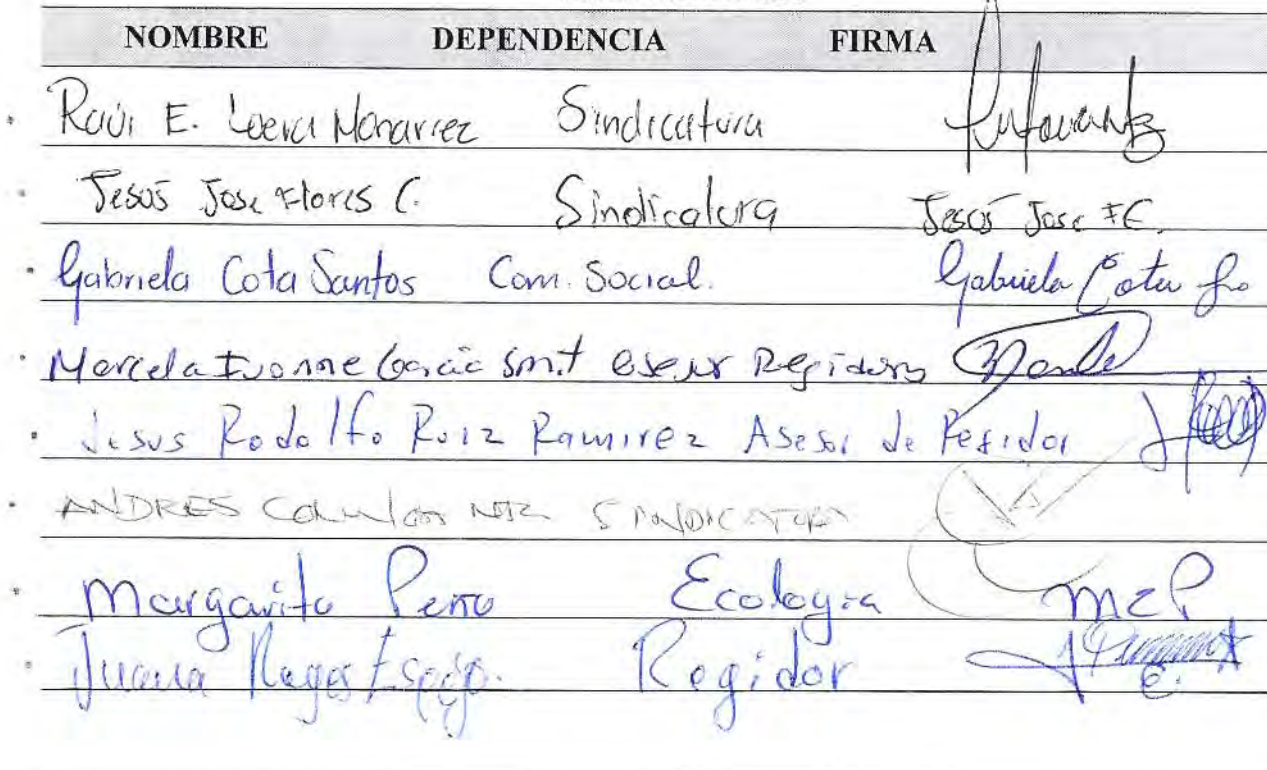 NOMBRE DEPENDENCIA FIRMA
Raúl E. Loera Monarrez Sindicatura
Jesús Jose Flores C. Sindicatura Jesús Jose FC.
Gabriela Cota Santos Com. Social. Gabriela Cota
Marcela Ivonne Garcia Smit Regidora
Jesus Rodolfo Ruiz Ramirez Asesor de Regidor
ANDRES SINDICATURA
Margarita Ecología MZP
Juana Reyes Espejo. Regidor